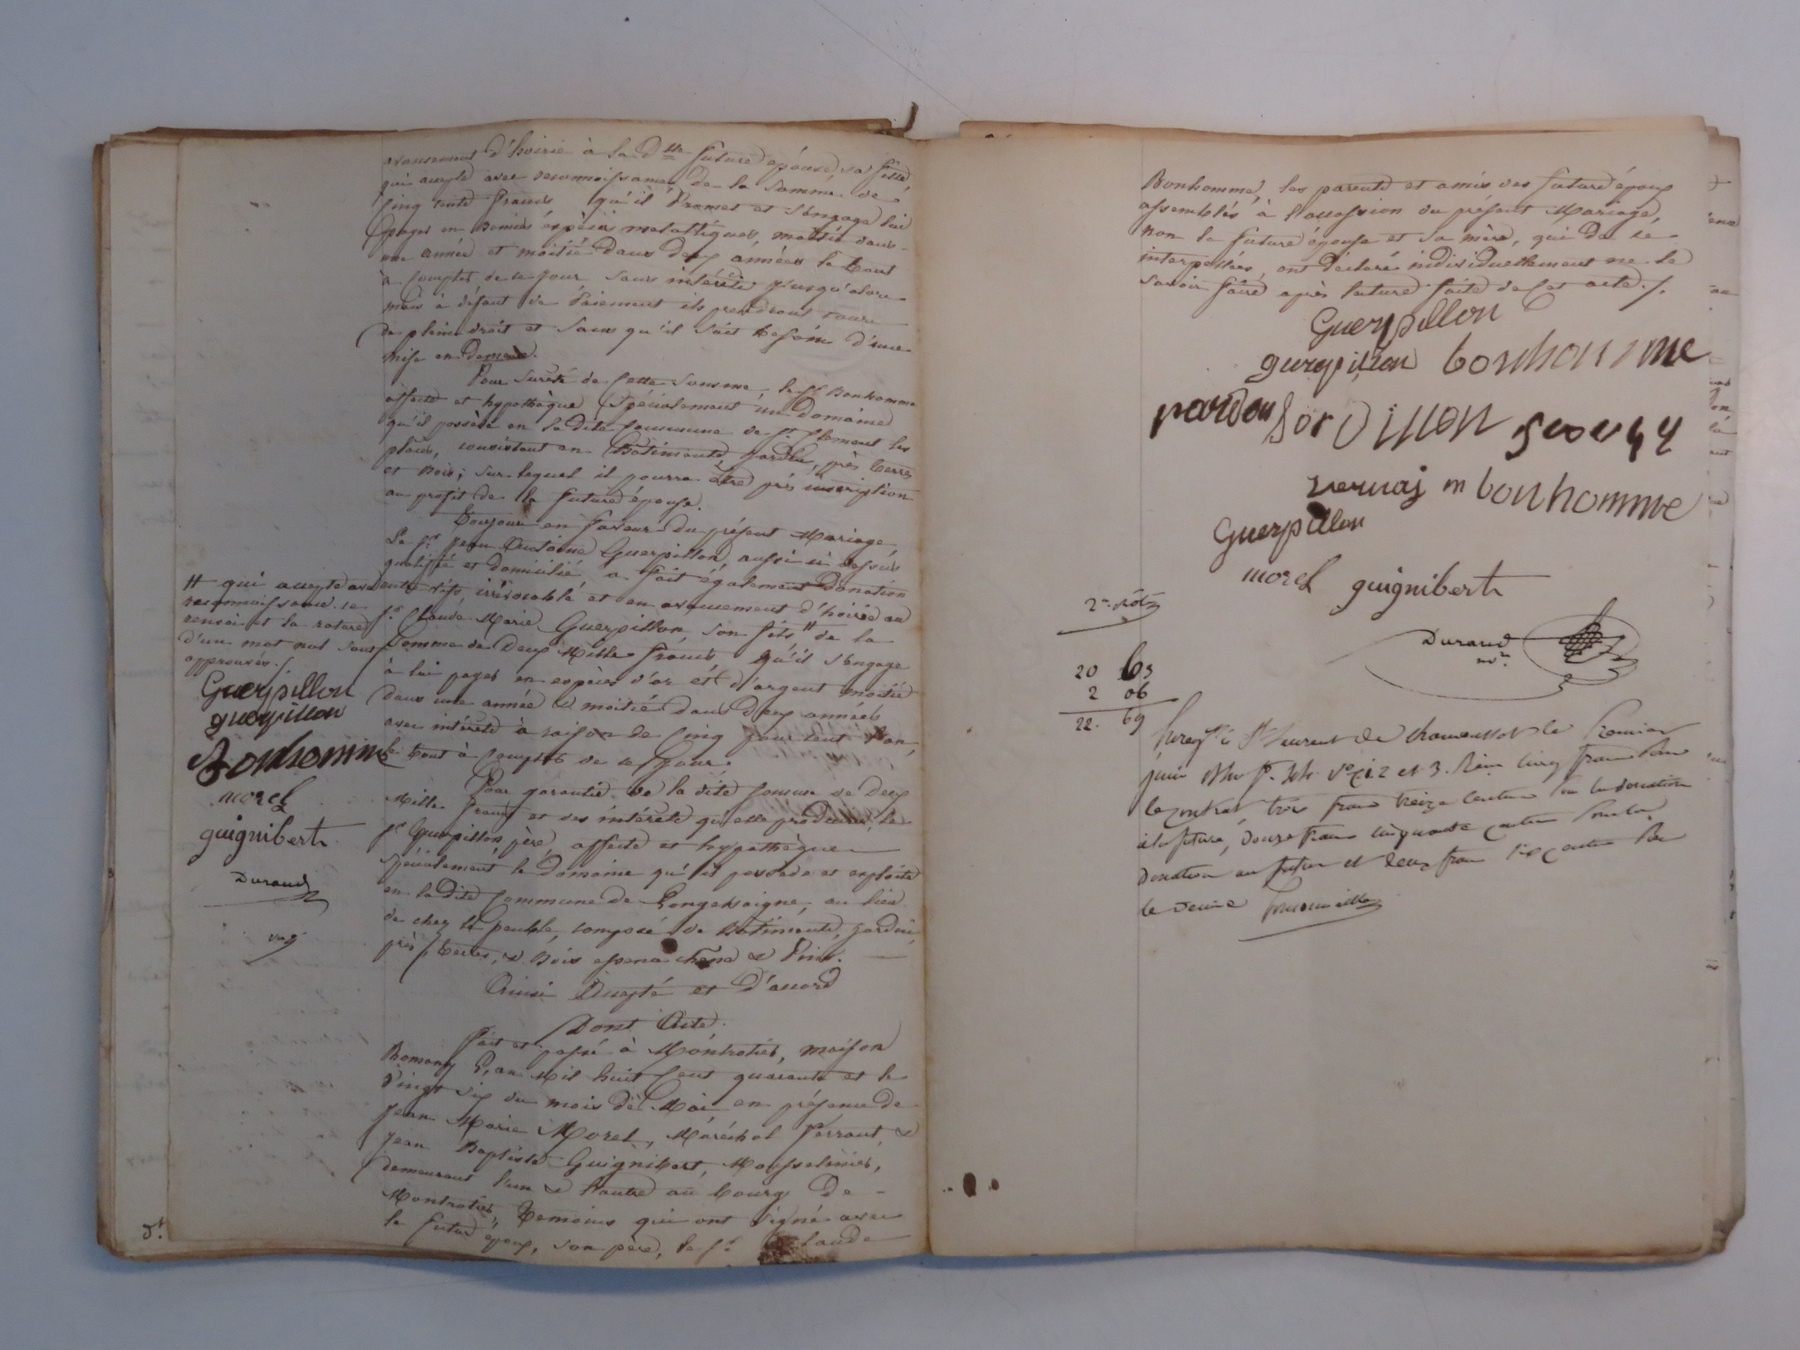 avancement d'hoirie à la Dlle future épouse sa fille
qui accepte avec reconnaissance de la somme de
Cinq cents francs qu'il Promet et s'engage lui
payer en deniers espèces métalliques, moitié dans
une année et moitié dans deux années le tout
à compter de ce jour sans intérêts jusqu'alors
mais à défaut de Paiement ils prendront cours
de plein droit et sans qu'il soit besoin d'une
mise en demeure.
Pour sureté de cette somme, le sr Bonhomme
affecte et hypothèque spécialement un domaine
qu'il possède en la dite commune de St Clément les
places, consistant en Bâtiments, jardin, près terres
et Bois; sur lequel il pourra être pris inscription
au profit de la future épouse.
Toujours en faveur du présent Mariage
Le sr Jean Antoine Guerpillon, aussi ci dessus
qualifié et domicilié, a fait également Donation
entre vifs, irrévocable et en avancement d'hoirie au
sr Claude Marie Guerpillon, son fils # de la
Somme de Deux Mille francs qu'il s'engage
à lui payer en espèces d'or et d'argent moitié
dans une année & moitié dans deux années
avec intérêts à raison de cinq pour cent l'an,
le tout à compter de ce jour.
Pour garantie de la dite somme de Deux
Mille francs et des intérêts qu'elle produira, le
sr Guerpillon père, affecte et hypothèque
spécialement le domaine qu'il possède et exploite
en la dite commune de Longessaigne, au lieu
de chez le peuble, composé de Bâtiments, jardin,
près, Terres, & Bois essence chêne & Pins.
Ainsi Accepté et D'accord
Dont Acte.
Fait et passé à Montrotier, maison
Romany L'an Mil huit cent quarante et le
Vingt six du mois de Mai en présence de
Jean Marie Morel, Maréchal ferrant, &
Jean Baptiste Guignibert, Mousselinier,
demeurant l'un & l'autre au bourg de
Montrotier, Témoins qui ont signé avec
le futur époux, son père, le sr Claude
# qui accepte avec
reconnaissance. ce
renvoi et la rature
d'un mot nul sont
approuvés ./.
Guerpillon
guerpillon
Bonhomme
morel
guignibert
Durand
Bonhomme, les parents et amis des futurs époux
assemblés à l'occasion du présent Mariage,
non la future épouse et sa mère, qui de ce
interpellées, ont déclaré individuellement ne le
savoir faire après lecture faite de cet acte ./.
Guerpillon
guerpillon bonhomme
pardon
vernaj m bonhomme
Guerpillon
morel guignibert
Durand
nre
20 63
2 06
22. 69
Enregté à St Laurent de Chamousset le Premier
juin Reçu cinq francs Pour
le contrat, trois francs treize centimes Pour la donation
à la future, douze francs cinquante centimes Pour la
Donation au futur et deux francs six centimes Pour
le Decime